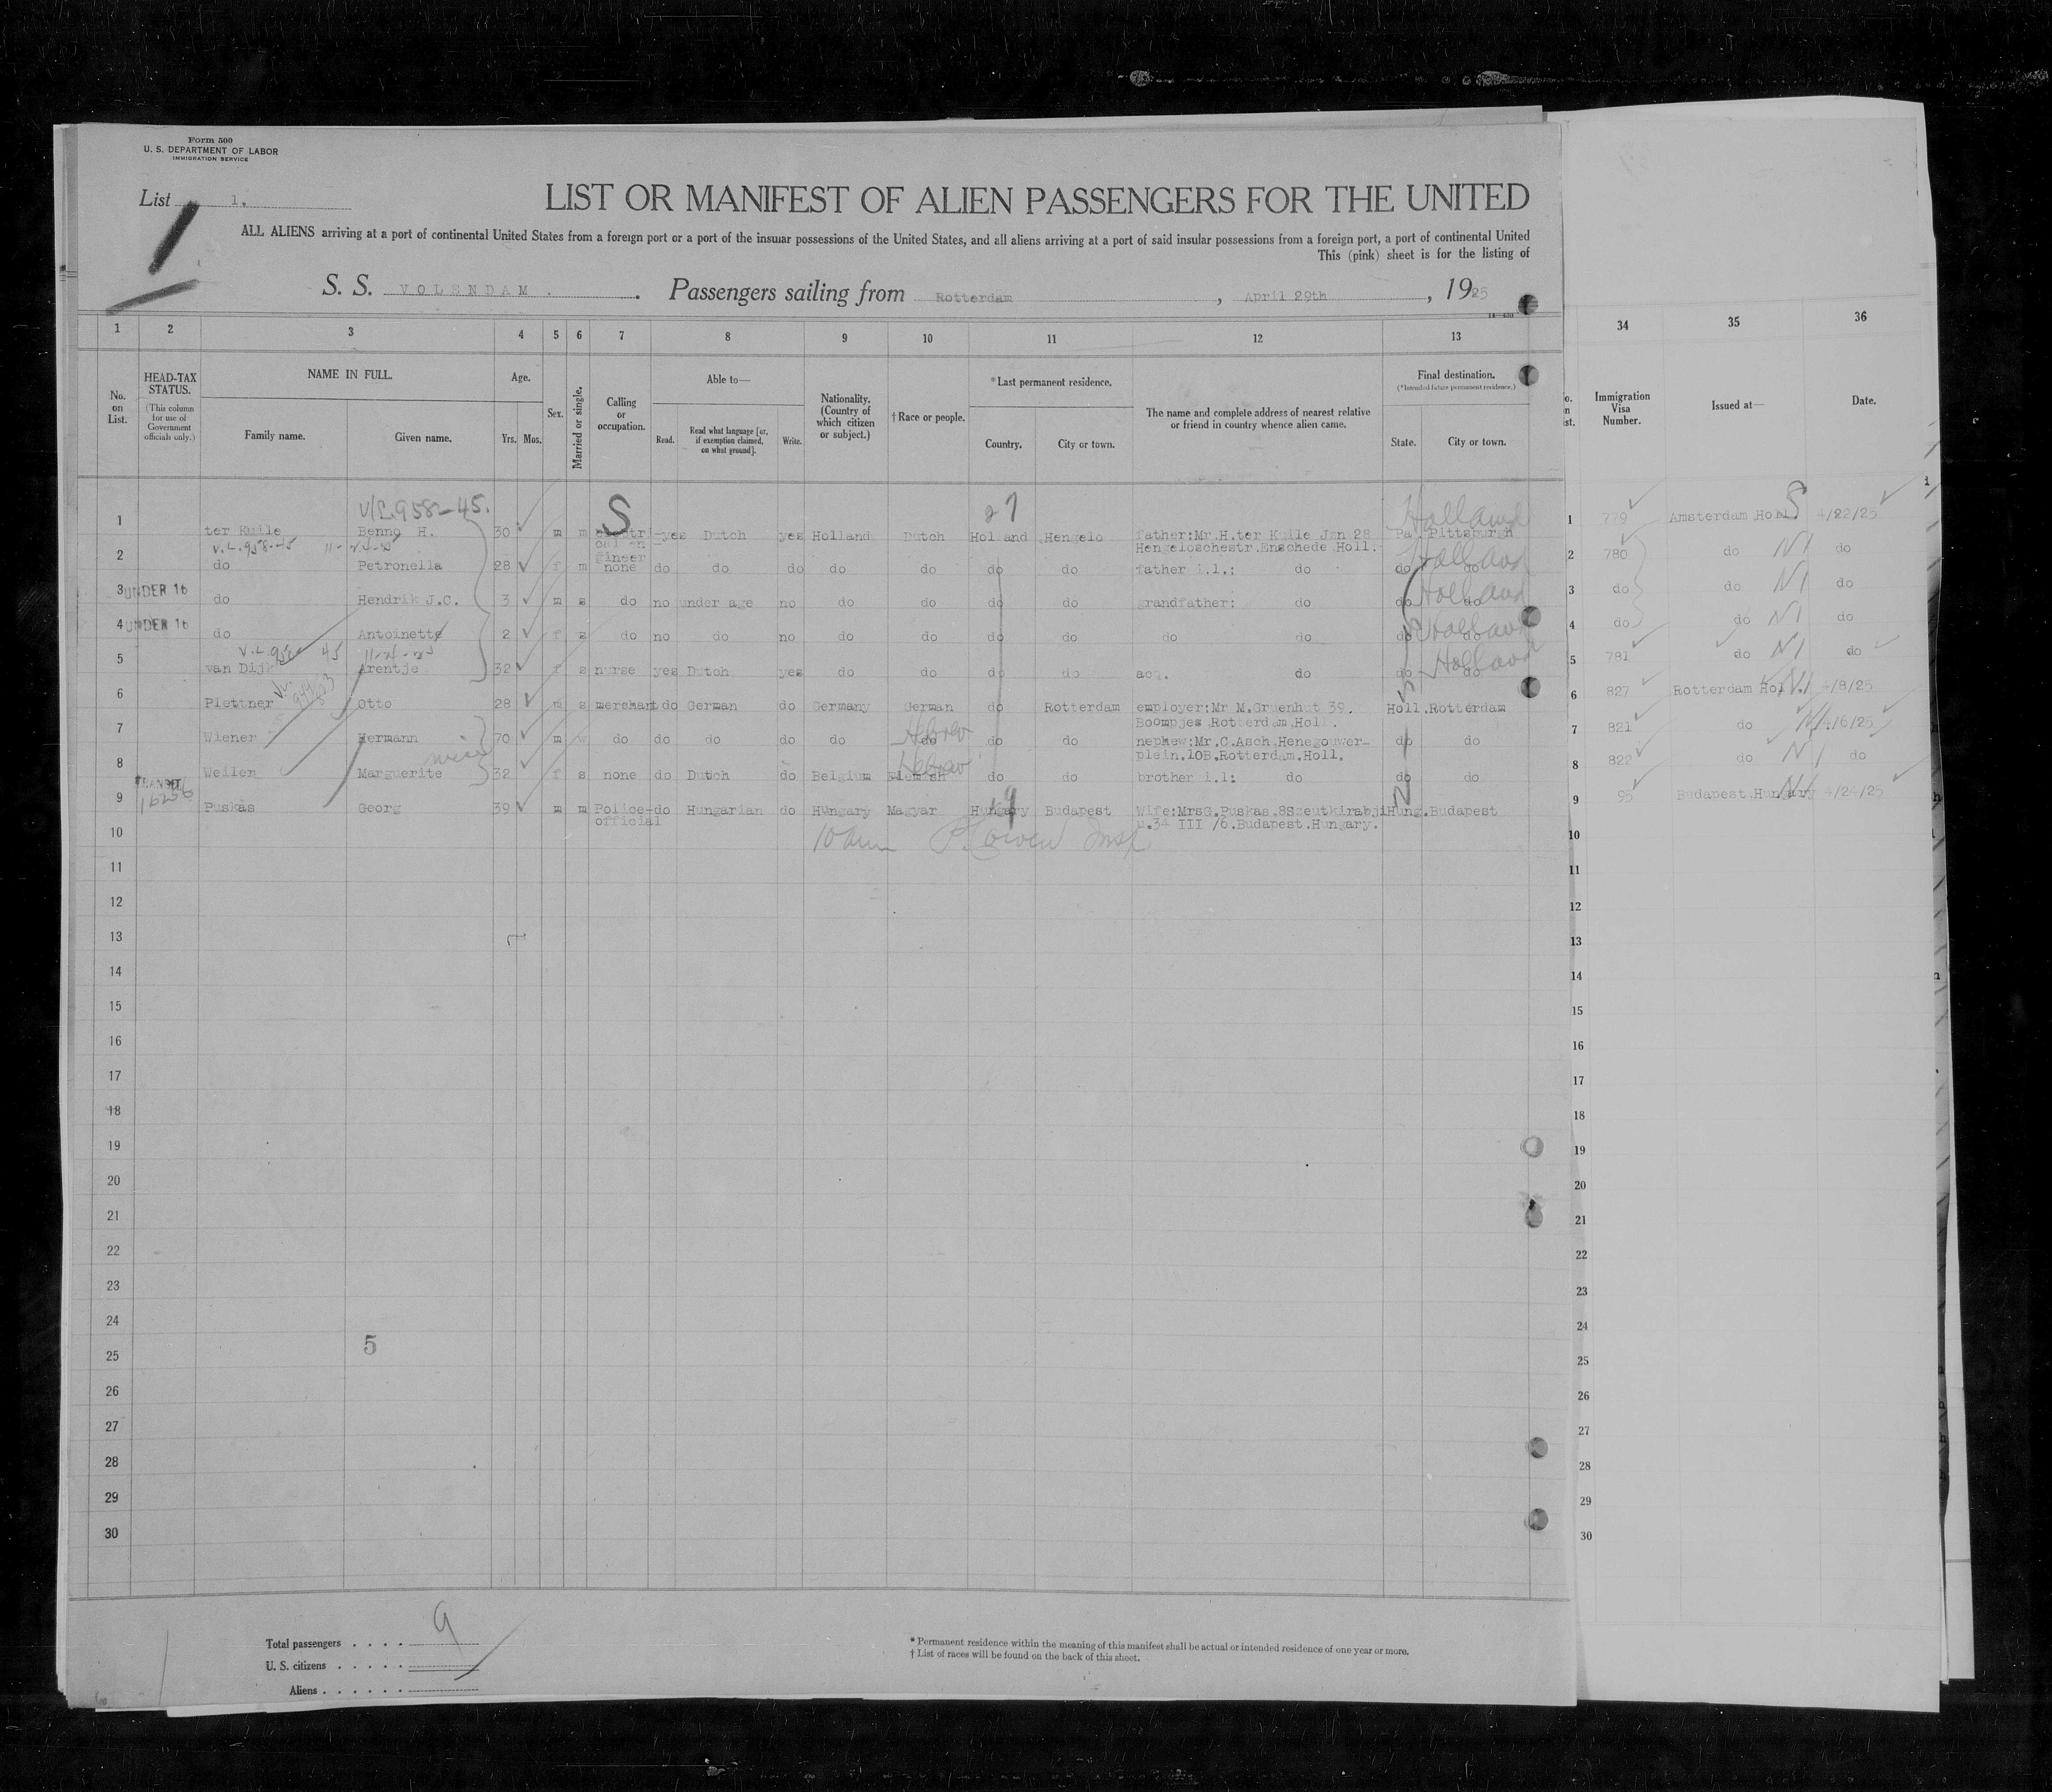 Form 500
U. S. DEPARTMENT OF LABOR
IMMIGRATION SERVICE
List 1.
1
LIST OR MANIFEST OF ALIEN PASSENGERS FOR THE UNITED
ALL ALIENS arriving at a port of continental United States from a foreign port or a port of the insular possessions of the United States, and all aliens arriving at a port of said insular possessions from a foreign port, a port of continental United
This (pink) sheet is for the listing of
S. S. VOLENDAM. Passengers sailing from Rotterdam, April 29th, 1925
1 2 3 4 5 6 7 8 9 10 11 12 13 34 35 36
No. on List.
HEAD-TAX STATUS.
(This column for use of Government officials only.)
NAME IN FULL.
Family name. Given name.
Age.
Yrs. Mos.
Sex.
Married or single.
Calling or occupation.
Able to—
Read. Read what language [or, if exemption claimed, on what ground]. Write.
Nationality. (Country of which citizen or subject.)
† Race or people.
*Last permanent residence.
Country. City or town.
The name and complete address of nearest relative or friend in country whence alien came.
Final destination.
(*Intended future permanent residence.)
State. City or town.
Immigration Visa Number.
Issued at—
Date.
V/L 958-45. S 27 Holland S
1 ter Kuile Benno H. 30 m m electrical engineer yes Dutch yes Holland Dutch Holland Hengelo father:Mr.H.ter Kuile Jzn 28 Hengeloschestr.Enschede Holl. Pa. Pittsburgh 1 779 Amsterdam Holl. 4/22/25
V.L. 958-45
2 do Petronella 28 f m none do do do do do do do father i.l.: do do do Holland 2 780 do N I do
3 UNDER 16 do Hendrik J.C. 3 m s do no under age no do do do do grandfather: do do do Holland 3 do do N I do
4 UNDER 16 do Antoinette 2 f s do no do no do do do do do do do do Holland 4 do do N I do
5 van Dijk Arentje 32 f s nurse yes Dutch yes do do do do acq. do do Holland 5 781 do N I do
6 Plettner Otto 28 m s merchant do German do Germany German do Rotterdam employer:Mr M.Gruenhut 39. Boompjes Rotterdam.Holl. Holl. Rotterdam 6 827 Rotterdam Holl. 4/8/25
7 Wiener Hermann 70 m w do do do do do do Hebrew do do nephew:Mr.C.Asch.Henegouwer-plein.10B.Rotterdam.Holl. do do 7 821 do N I 4/6/25
8 Weilen Marguerite 32 f s none do Dutch do Belgium Flemish Hebrew do do brother i.l: do do do 8 822 do N I do
niece
TRANSIT
9 Puskás Georg 39 m m Police-official do Hungarian do Hungary Magyar Hungary Budapest Wife:MrsG.Puskas.8Szeutkirabji u.34 III /6.Budapest.Hungary. Hung. Budapest 9 95 Budapest.Hungary 4/24/25
10 10
11 11
12 12
13 13
14 14
15 15
16 16
17 17
18 18
19 19
20 20
21 21
22 22
23 23
24 24
5
25 25
26 26
27 27
28 28
29 29
30 30
Total passengers . . . . 9
U. S. citizens . . . . .
Aliens . . . . . .
* Permanent residence within the meaning of this manifest shall be actual or intended residence of one year or more.
† List of races will be found on the back of this sheet.